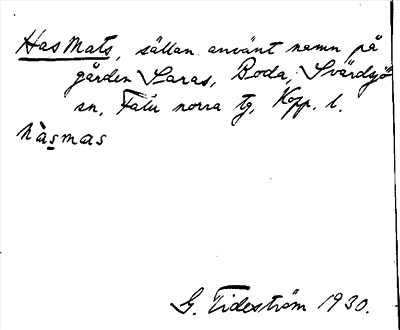 Has Mats, sällan använt namn på
gården Saras, Boda, Svärdsjö
sn, Falu norra tg, Kopp. l.
hàsmas
G. Tideström 1930.